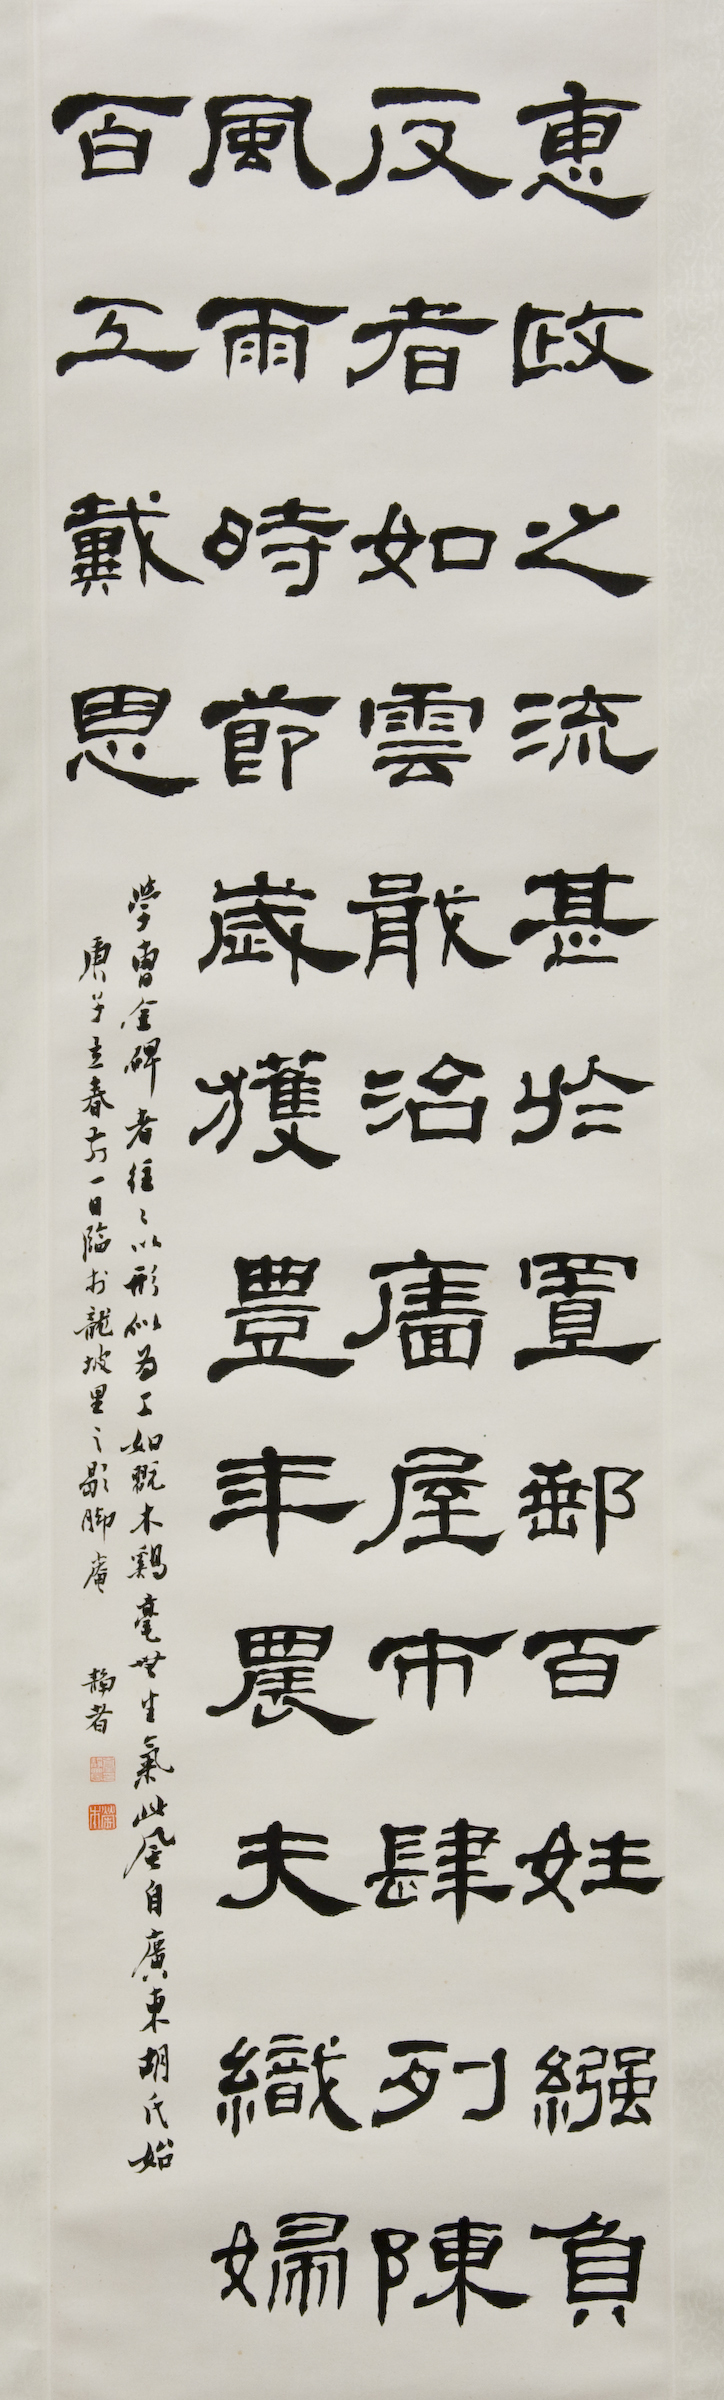 惠政之流甚於置郵百姓繦負
反者如雲戢治廧屋市肆列陳
風雨時節歲獲豐年農夫織婦
百工戴恩
學曹全碑者往〻以形似為工如戳木鷄毫無生氣此風自廣東胡氏始
庚子立春前一日臨於龍坡里之歇腳庵
靜者